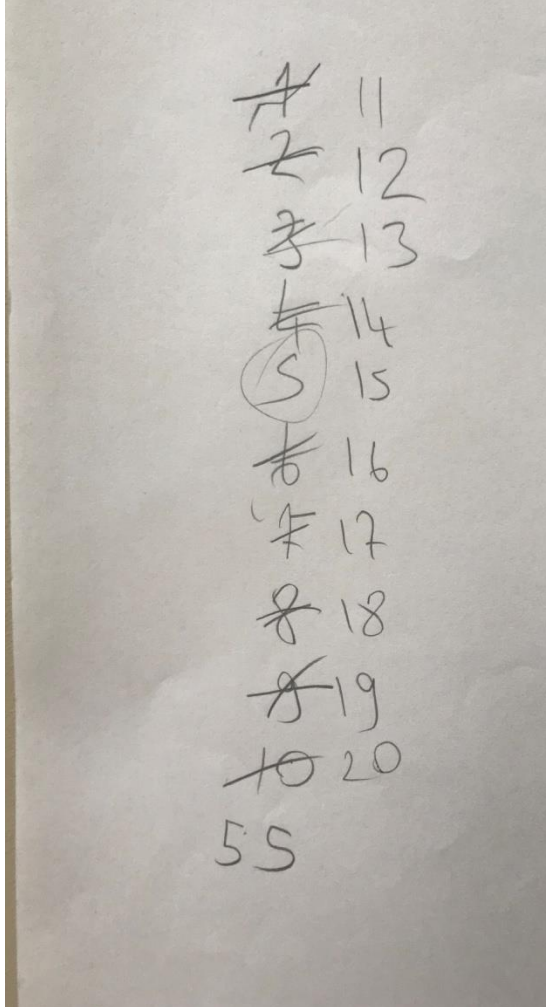 1 11
2 12
3 13
4 14
5 15
6 16
7 17
8 18
9 19
10 20
55